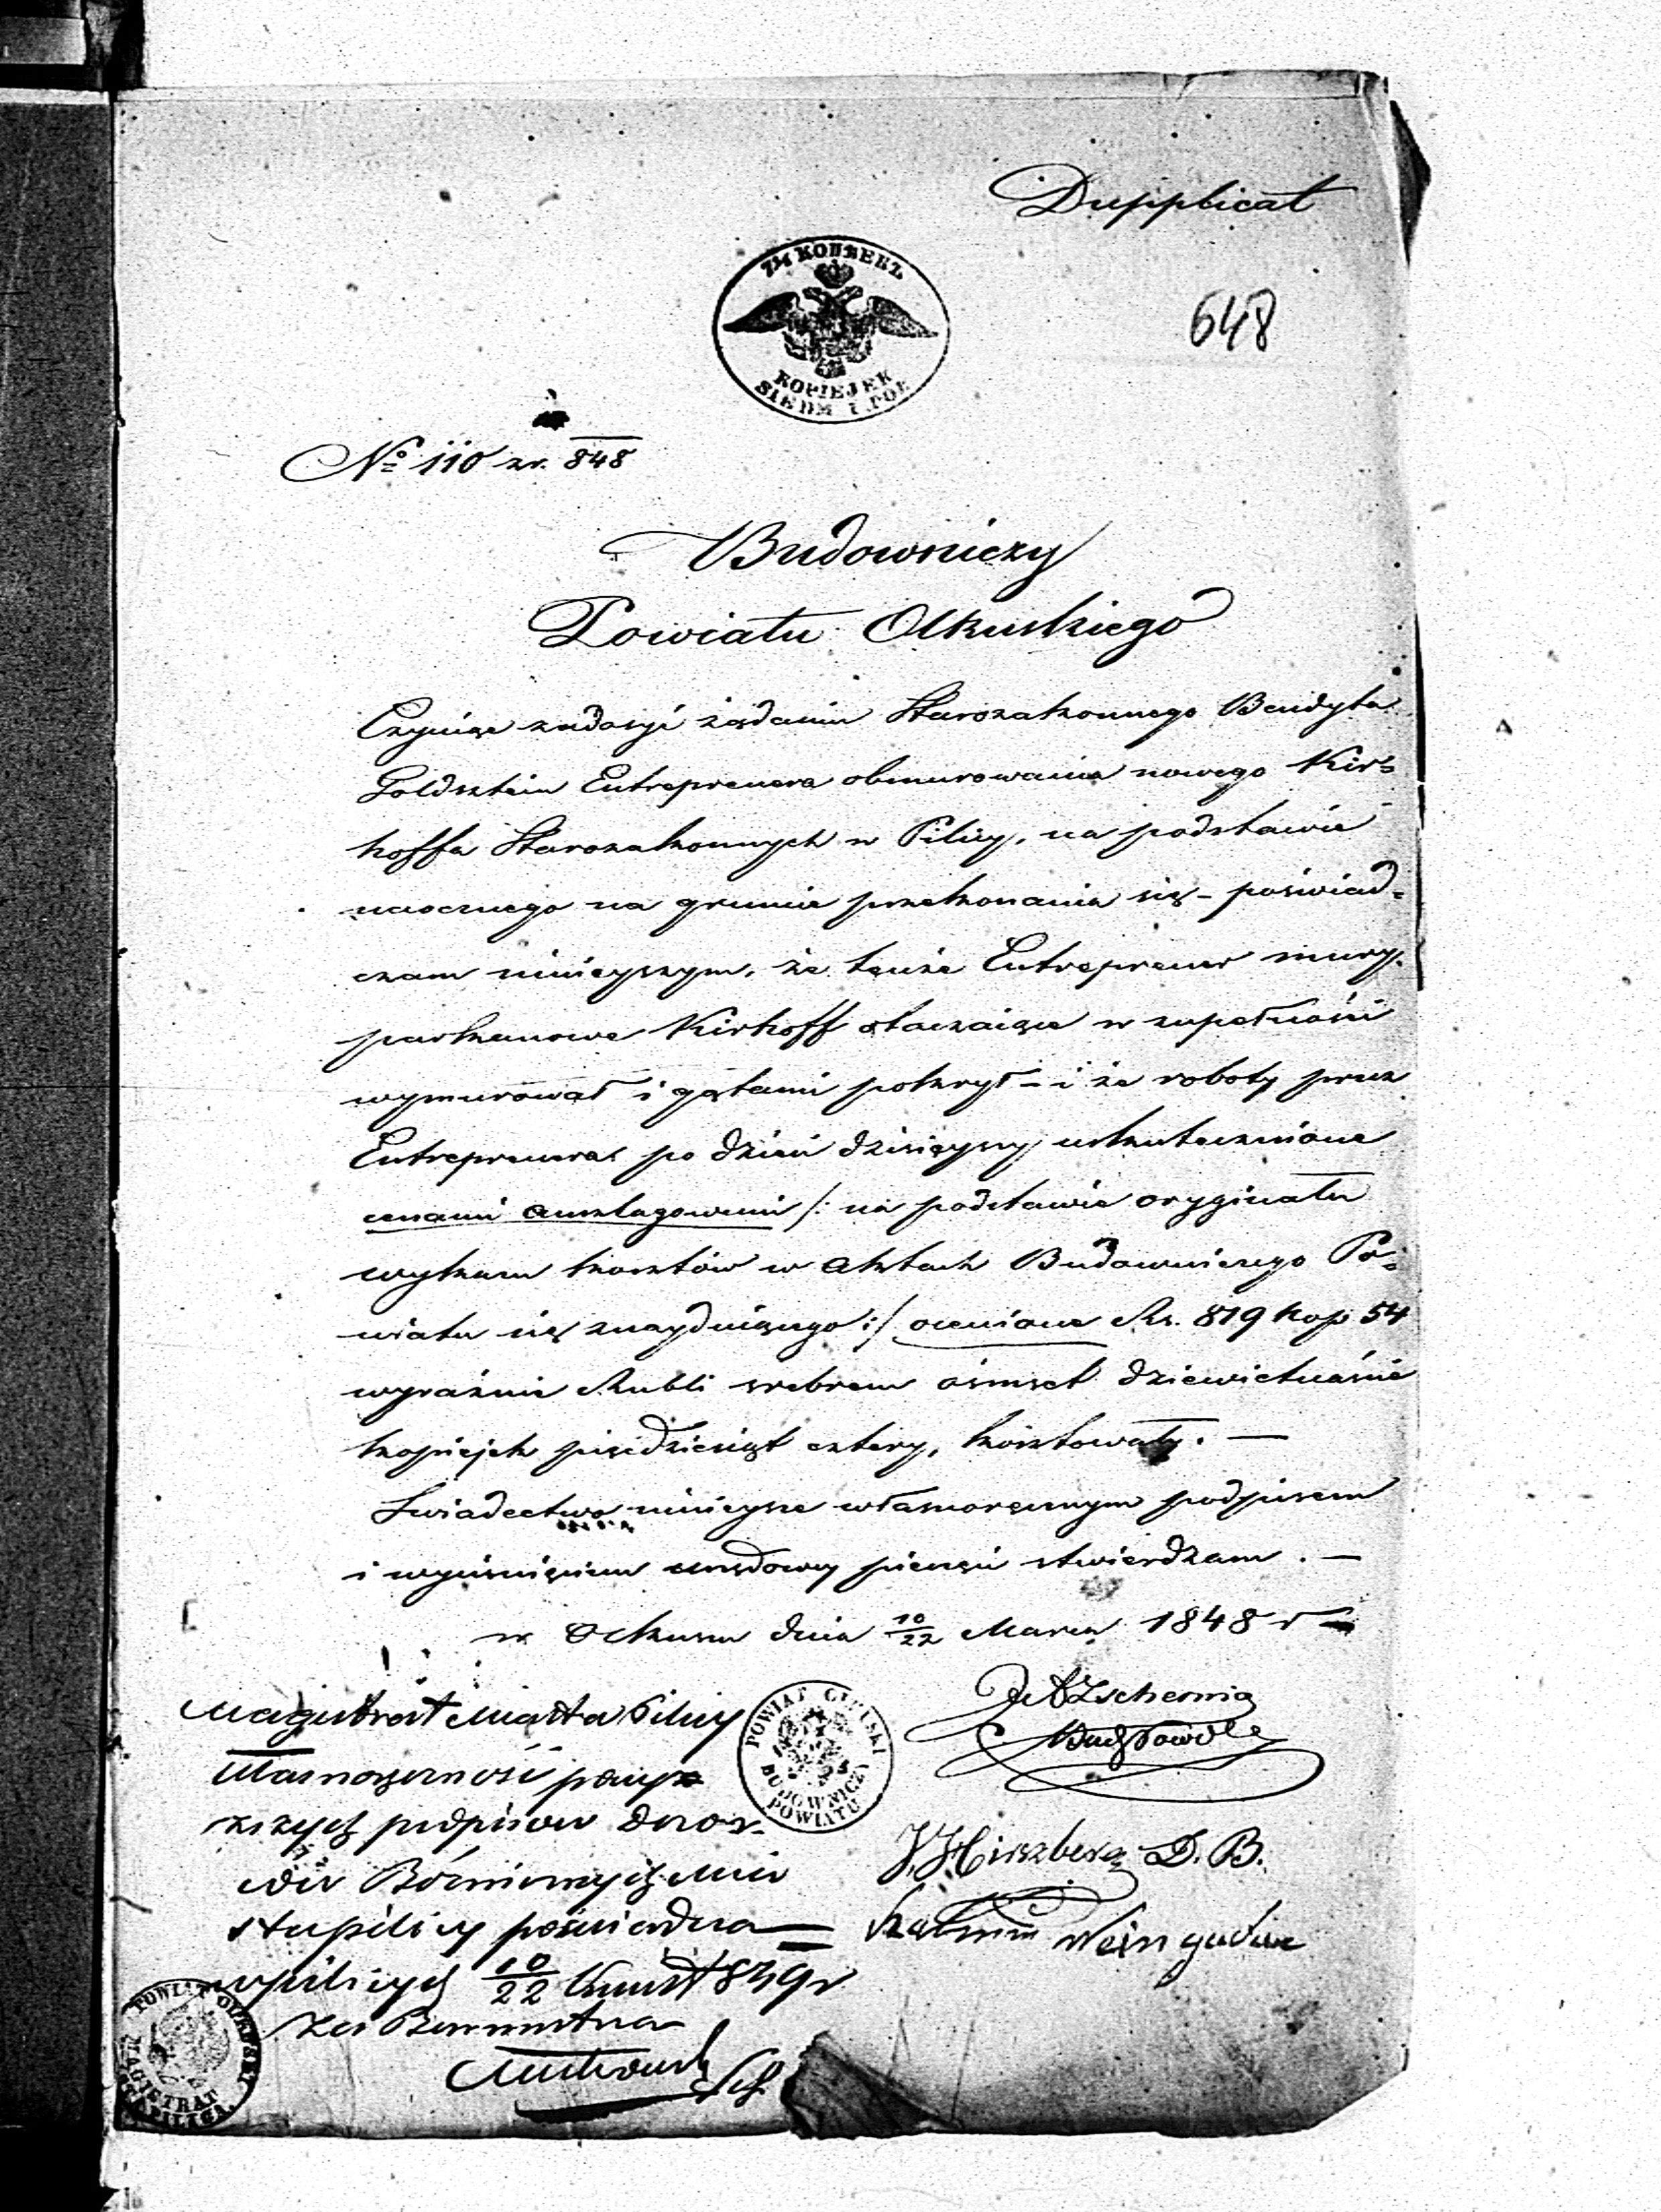 Dupplicat
7½ КОПѢЕКЪ
KOPIEJEK
SIEDM I PÓŁ
648
No 110 zr. 848
Budowniczy
Powiatu Olkuskiego
Czyniąc zadosyć żądaniu Starozakonnego Bendyta
Goldsztein Entreprenera obmurowania nowego Kir-
koffa Starozakonnych w Pilicy, na podstawie
naocznego na gruncie przekonania się – poświad-
czam ninieyszym, że tenże Entreprener mury
parkanowe Kirkoff otaczaiące w zupełności
wymurował i gątami pokrył – i że roboty przez
Entreprenera po dzień dzisieyszy uskutecznione
cenami anszlagowemi /: na podstawie oryginału
wykazu kosztów w aktach Budowniczego Po-
wiatu się znayduiącego :/ ocenione Rs. 819 kop 54
wyraźnie Rubli srebrem ośmset dziewietnaście
kopiejek pięćdziesiąt cztery, kosztowały. —
Swiadectwo ninieysze własnoręcznym podpisem
i wyciśnięciem urzędowy pieczęci stwierdzam. —
w Olkuszu dnia 10/22 Marca 1848 r
Magistrat Miasta Pilicy
Własnoręczność powyż
szych podpisów Dozor-
ców Bóżnicznych Mia
sta Pilicy poświadcza
w Pilicy d 10/22 1849 r
Za Burmistrza
POWIAT OLKUSKI
BUDOWNICZY
POWIATU
Zschernig
Bud. Powiatu
J. Hirszberg D. B.
Kalman Weingarten
POWIAT OLKUSKI
MAGISTRAT
M. PILICA